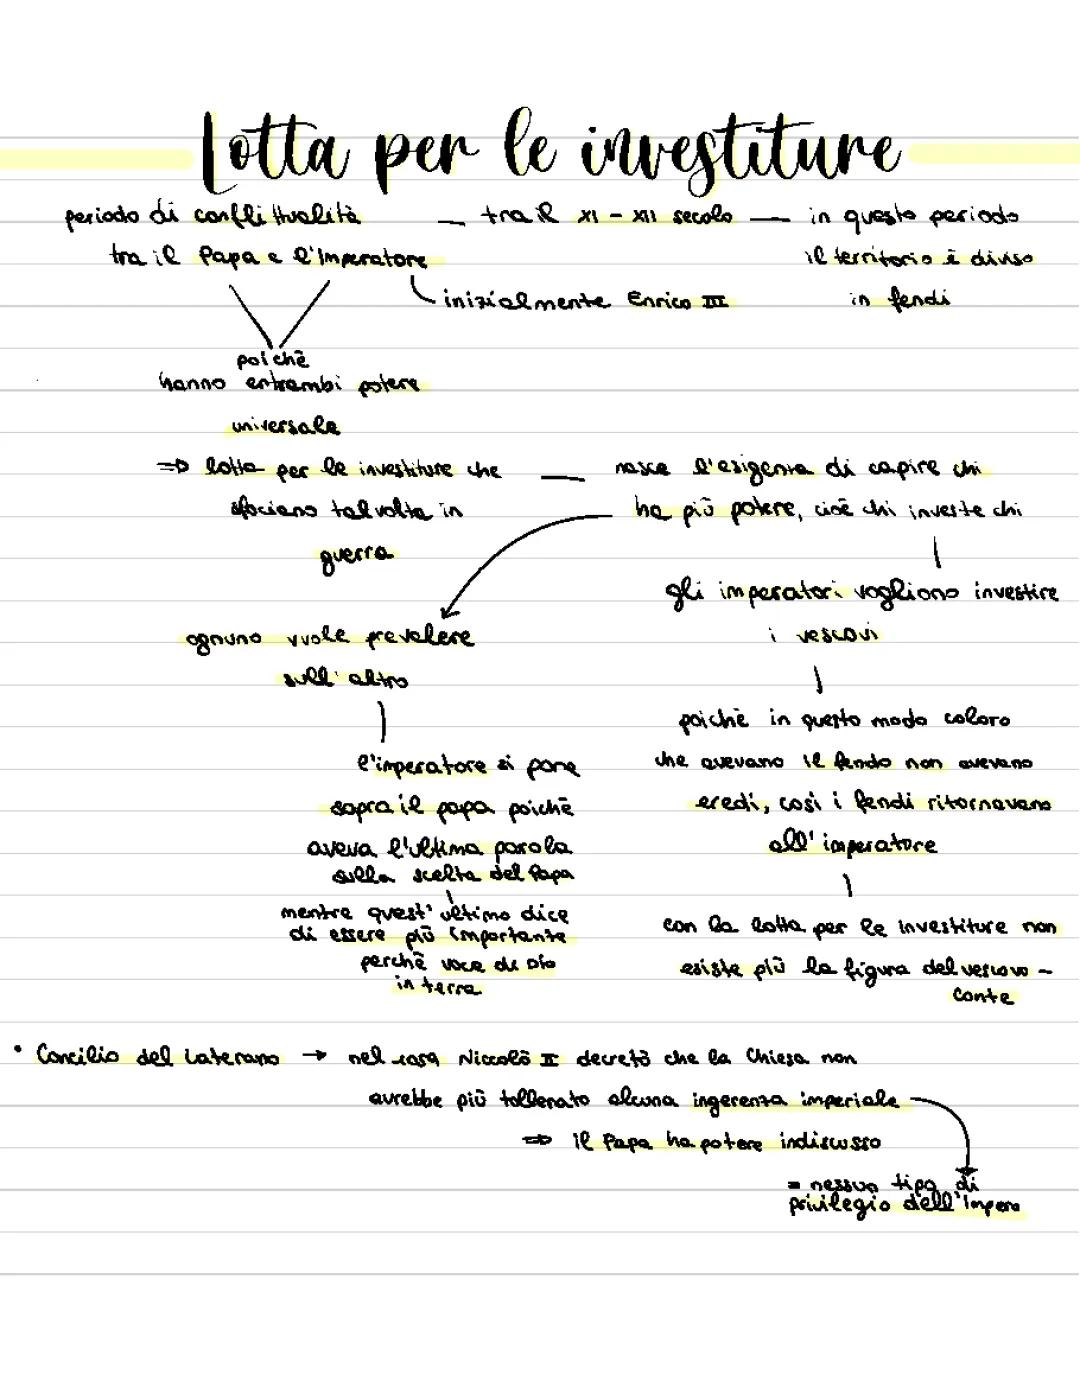 Lotta per le investiture
periodo di conflittualità — tra il XI - XII secolo — in questo periodo
tra il Papa e l'Imperatore il territorio è diviso
inizialmente Enrico III in feudi
poichè
hanno entrambi potere
universale
=> lotta per le investiture che — nasce l'esigenza di capire chi
sfociano talvolta in ha più potere, cioè chi investe chi
guerra
gli imperatori vogliono investire
ognuno vuole prevalere i vescovi
sull'altro
poichè in questo modo coloro
l'imperatore si pone che avevano il feudo non avevano
sopra il papa poichè eredi, così i feudi ritornavano
aveva l'ultima parola all'imperatore
sulla scelta del Papa
mentre quest'ultimo dice con la lotta per le investiture non
di essere più importante
perchè voce di Dio esiste più la figura del vescovo -
in terra conte
• Concilio del Laterano → nel Niccolò II decretò che la Chiesa non
avrebbe più tollerato alcuna ingerenza imperiale
=> il Papa ha potere indiscusso
= nessun tipo di
privilegio dell'Impero